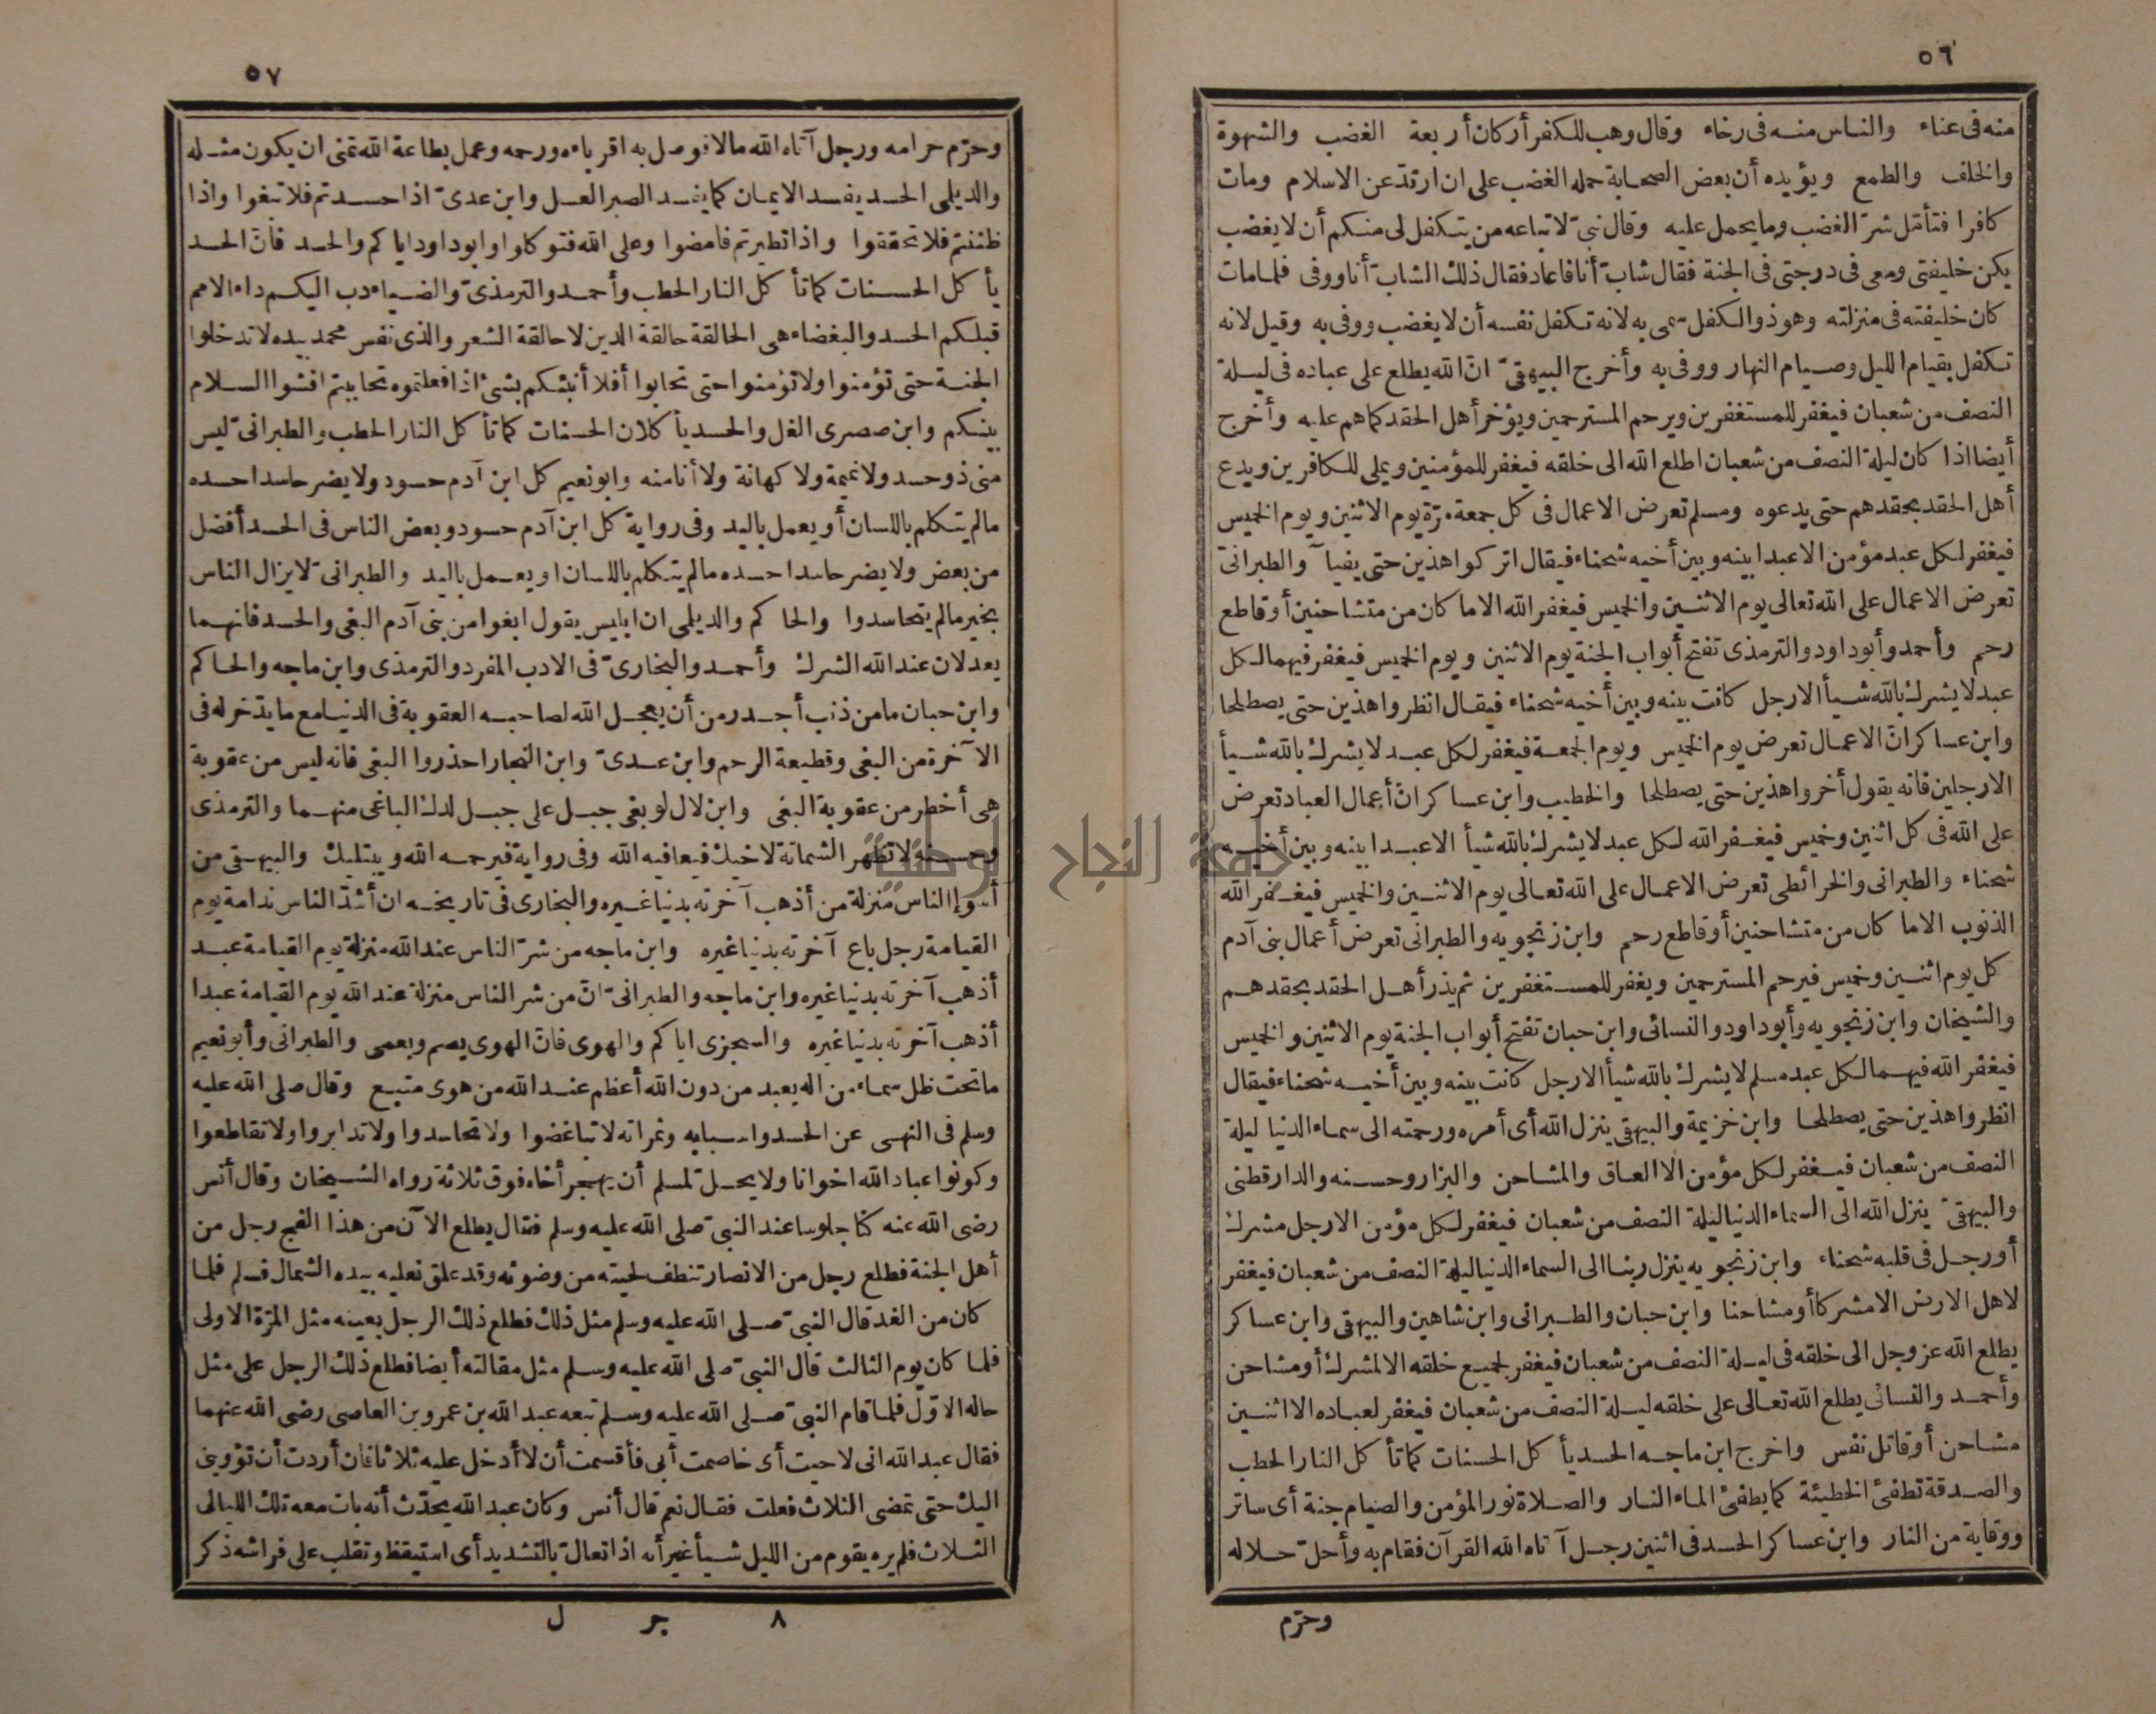 ٥٦
منه فى عناء والناس منه فى رخاء وقال وهب للكفر أركان أربعة الغضب والشهوة
والخلف والطمع ويؤيده أن بعض الصحابة حمله الغضب على ان ارتد عن الاسلام ومات
كافرا فتأمل شر الغضب وما يحمل عليه وقال نبىّ لاتباعه من يتكفل لى منكم أن لا يغضب
يكن خليفتى ومعى فى درجتى فى الجنة فقال شاب أنا فاعاد فقال ذلك الشاب أنا ووفى فلما مات
كان خليفته فى منزلته وهو ذو الكفل سمى به لانه تكفل نفسه أن لا يغضب ووفى به وقيل لانه
تكفل بقيام الليل وصيام النهار ووفى به وأخرج البيهقىّ انّ الله يطلع على عباده فى ليلة
النصف من شعبان فيغفر للمستغفرين ويرحم المسترحمين ويؤخر أهل الحقد كما هم عليه وأخرج
أيضا اذا كان ليلة النصف من شعبان اطلع الله الى خلقه فيغفر للمؤمنين ويملى للكافرين ويدع
أهل الحقد بحقدهم حتى يدعوه ومسلم تعرض الاعمال فى كل جمعة مرّة يوم الاثنين ويوم الخميس
فيغفر لكل عبد مؤمن الا عبدا بينه وبين أخيه شحناء فيقال اتركوا هذين حتى يفيآ والطبرانىّ
تعرض الاعمال على الله تعالى يوم الاثنين والخميس فيغفر الله الا ما كان من متشاحنين أو قاطع
رحم وأحمد وأبو داود والترمذى تفتح أبواب الجنة يوم الاثنين ويوم الخميس فيغفر فيهما لكل
عبد لا يشرك بالله شيأ الا رجل كانت بينه وبين أخيه شحناء فيقال انظروا هذين حتى يصطلحا
وابن عساكر انّ الاعمال تعرض يوم الخميس ويوم الجمعة فيغفر لكل عبد لا يشرك بالله شيأ
الا رجلين فانه يقول أخروا هذين حتى يصطلحا والخطيب وابن عساكر انّ أعمال العباد تعرض
على الله فى كل اثنين وخميس فيغفر الله لكل عبد لا يشرك بالله شيأ الا عبدا بينه وبين أخيه
شحناء والطبرانى والخرائطى تعرض الاعمال على الله تعالى يوم الاثنين والخميس فيغفر الله
الذنوب الا ما كان من متشاحنين أو قاطع رحم وابن زنجويه والطبرانى تعرض أعمال بنى آدم
كل يوم اثنين وخميس فيرحم المسترحمين ويغفر للمستغفرين ثم يذر أهل الحقد بحقدهم
والشيخان وابن زنجويه وأبو داود والنسائى وابن حبان تفتح أبواب الجنة يوم الاثنين والخميس
فيغفر الله فيهما لكل عبد مسلم لا يشرك بالله شيأ الا رجل كانت بينه وبين أخيه شحناء فيقال
انظروا هذين حتى يصطلحا وابن خزيمة والبيهقى ينزل الله أى أمره ورحمته الى سماء الدنيا ليلة
النصف من شعبان فيغفر لكل مؤمن الا العاق والمشاحن والبزار وحسنه والدارقطنى
والبيهقىّ ينزل الله الى السماء الدنيا ليلة النصف من شعبان فيغفر لكل مؤمن الا رجل مشرك
أو رجل فى قلبه شحناء وابن زنجويه ينزل ربنا الى السماء الدنيا ليلة النصف من شعبان فيغفر
لاهل الارض الا مشركا أو مشاحنا وابن حبان والطبرانى وابن شاهين والبيهقى وابن عساكر
يطلع الله عز وجل الى خلقه فى ليلة النصف من شعبان فيغفر لجميع خلقه الا لمشرك أو مشاحن
وأحمد والنسائى يطلع الله تعالى على خلقه ليلة النصف من شعبان فيغفر لعباده الا اثنين
مشاحن أو قاتل نفس واخرج ابن ماجه الحسد يأكل الحسنات كما تأكل النار الحطب
والصدقة تطفئ الخطيئة كما يطفئ الماء النار والصلاة نور المؤمن والصيام جنة أى ساتر
ووقاية من النار وابن عساكر الحسد فى اثنين رجل آتاه الله القرآن فقام به وأحلّ حلاله
وحرّم
٥٧
وحرّم حرامه ورجل آتاه الله مالا فوصل به اقرباءه ورحمه وعمل بطاعة الله تمنى ان يكون مثله
والديلمى الحسد يفسد الايمان كما يفسد الصبر العسل وابن عدىّ اذا حسدتم فلا تبغوا واذا
ظننتم فلا تحققوا واذا تطيرتم فامضوا وعلى الله فتوكلوا وابو داود اياكم والحسد فانّ الحسد
يأكل الحسنات كما تأكل النار الحطب وأحمد والترمذىّ والضياء دب اليكم داء الامم
قبلكم الحسد والبغضاء هى الحالقة حالقة الدين لا حالقة الشعر والذى نفس محمد بيده لا تدخلوا
الجنة حتى تؤمنوا ولا تؤمنوا حتى تحابوا أفلا أنبئكم بشئ اذا فعلتموه تحاببتم افشوا السلام
بينكم وابن صصرى الغل والحسد يأكلان الحسنات كما تأكل النار الحطب والطبرانىّ ليس
منى ذو حسد ولا نميمة ولا كهانة ولا أنا منه وابو نعيم كل ابن آدم حسود ولا يضر حاسدا حسده
مالم يتكلم باللسان أو يعمل باليد وفى رواية كل ابن آدم حسود وبعض الناس فى الحسد أفضل
من بعض ولا يضر حاسدا حسده مالم يتكلم باللسان او يعمل باليد والطبرانىّ لا يزال الناس
بخير مالم يتحاسدوا والحاكم والديلمى ان ابليس يقول ابغوا من بنى آدم البغى والحسد فانهما
يعدلان عند الله الشرك وأحمد والبخارىّ فى الادب المفرد والترمذى وابن ماجه والحاكم
وابن حبان ما من ذنب أجدر من أن يعجل الله لصاحبه العقوبة فى الدنيا مع ما يدّخر له فى
الآخرة من البغى وقطيعة الرحم وابن عدىّ وابن النجار احذروا البغى فانه ليس من عقوبة
هى أخطر من عقوبة البغى وابن لال لو بغى جبل على جبل لدك الباغى منهما والترمذى
وحسنه لا تظهر الشماتة لاخيك فيعافيه الله وفى رواية فيرحمه الله ويبتليك والبيهقى من
أسوإ الناس منزلة من أذهب آخرته بدنيا غيره والبخارى فى تاريخه ان أشدّ الناس ندامة يوم
القيامة رجل باع آخرته بدنيا غيره وابن ماجه من شرّ الناس عند الله منزلة يوم القيامة عبد
أذهب آخرته بدنيا غيره وابن ماجه والطبرانىّ انّ من شر الناس منزلة عند الله يوم القيامة عبدا
أذهب آخرته بدنيا غيره والسجزى اياكم والهوى فانّ الهوى يصم ويعمى والطبرانى وأبو نعيم
ما تحت ظل سماء من اله يعبد من دون الله أعظم عند الله من هوى متبع وقال صلى الله عليه
وسلم فى النهى عن الحسد واسبابه وثمراته لا تباغضوا ولا تحاسدوا ولا تدابروا ولا تقاطعوا
وكونوا عباد الله اخوانا ولا يحلّ لمسلم أن يهجر أخاه فوق ثلاثة رواه الشيخان وقال أنس
رضى الله عنه كنا جلوسا عند النبىّ صلى الله عليه وسلم فقال يطلع الآن من هذا الفج رجل من
أهل الجنة فطلع رجل من الانصار تنطف لحيته من وضوئه وقد علق نعليه بيده الشمال فسلم فلما
كان من الغد قال النبىّ صلى الله عليه وسلم مثل ذلك فطلع ذلك الرجل بعينه مثل المرّة الاولى
فلما كان يوم الثالث قال النبىّ صلى الله عليه وسلم مثل مقالته أيضا فطلع ذلك الرجل على مثل
حاله الاوّل فلما قام النبىّ صلى الله عليه وسلم تبعه عبد الله بن عمرو بن العاصى رضى الله عنهما
فقال عبد الله انى لاحيت أى خاصمت أبى فأقسمت أن لا أدخل عليه ثلاثا فان أردت أن تؤوينى
اليك حتى تمضى الثلاث فعلت فقال نعم قال أنس وكان عبد الله يحدّث أنه بات معه تلك الليالى
الثلاث فلم يره يقوم من الليل شيأ غير أنه اذا تعارّ بالتشديد أى استيقظ وتقلب على فراشه ذكر
٨ جر ل
جامعة النجاح الوطنية